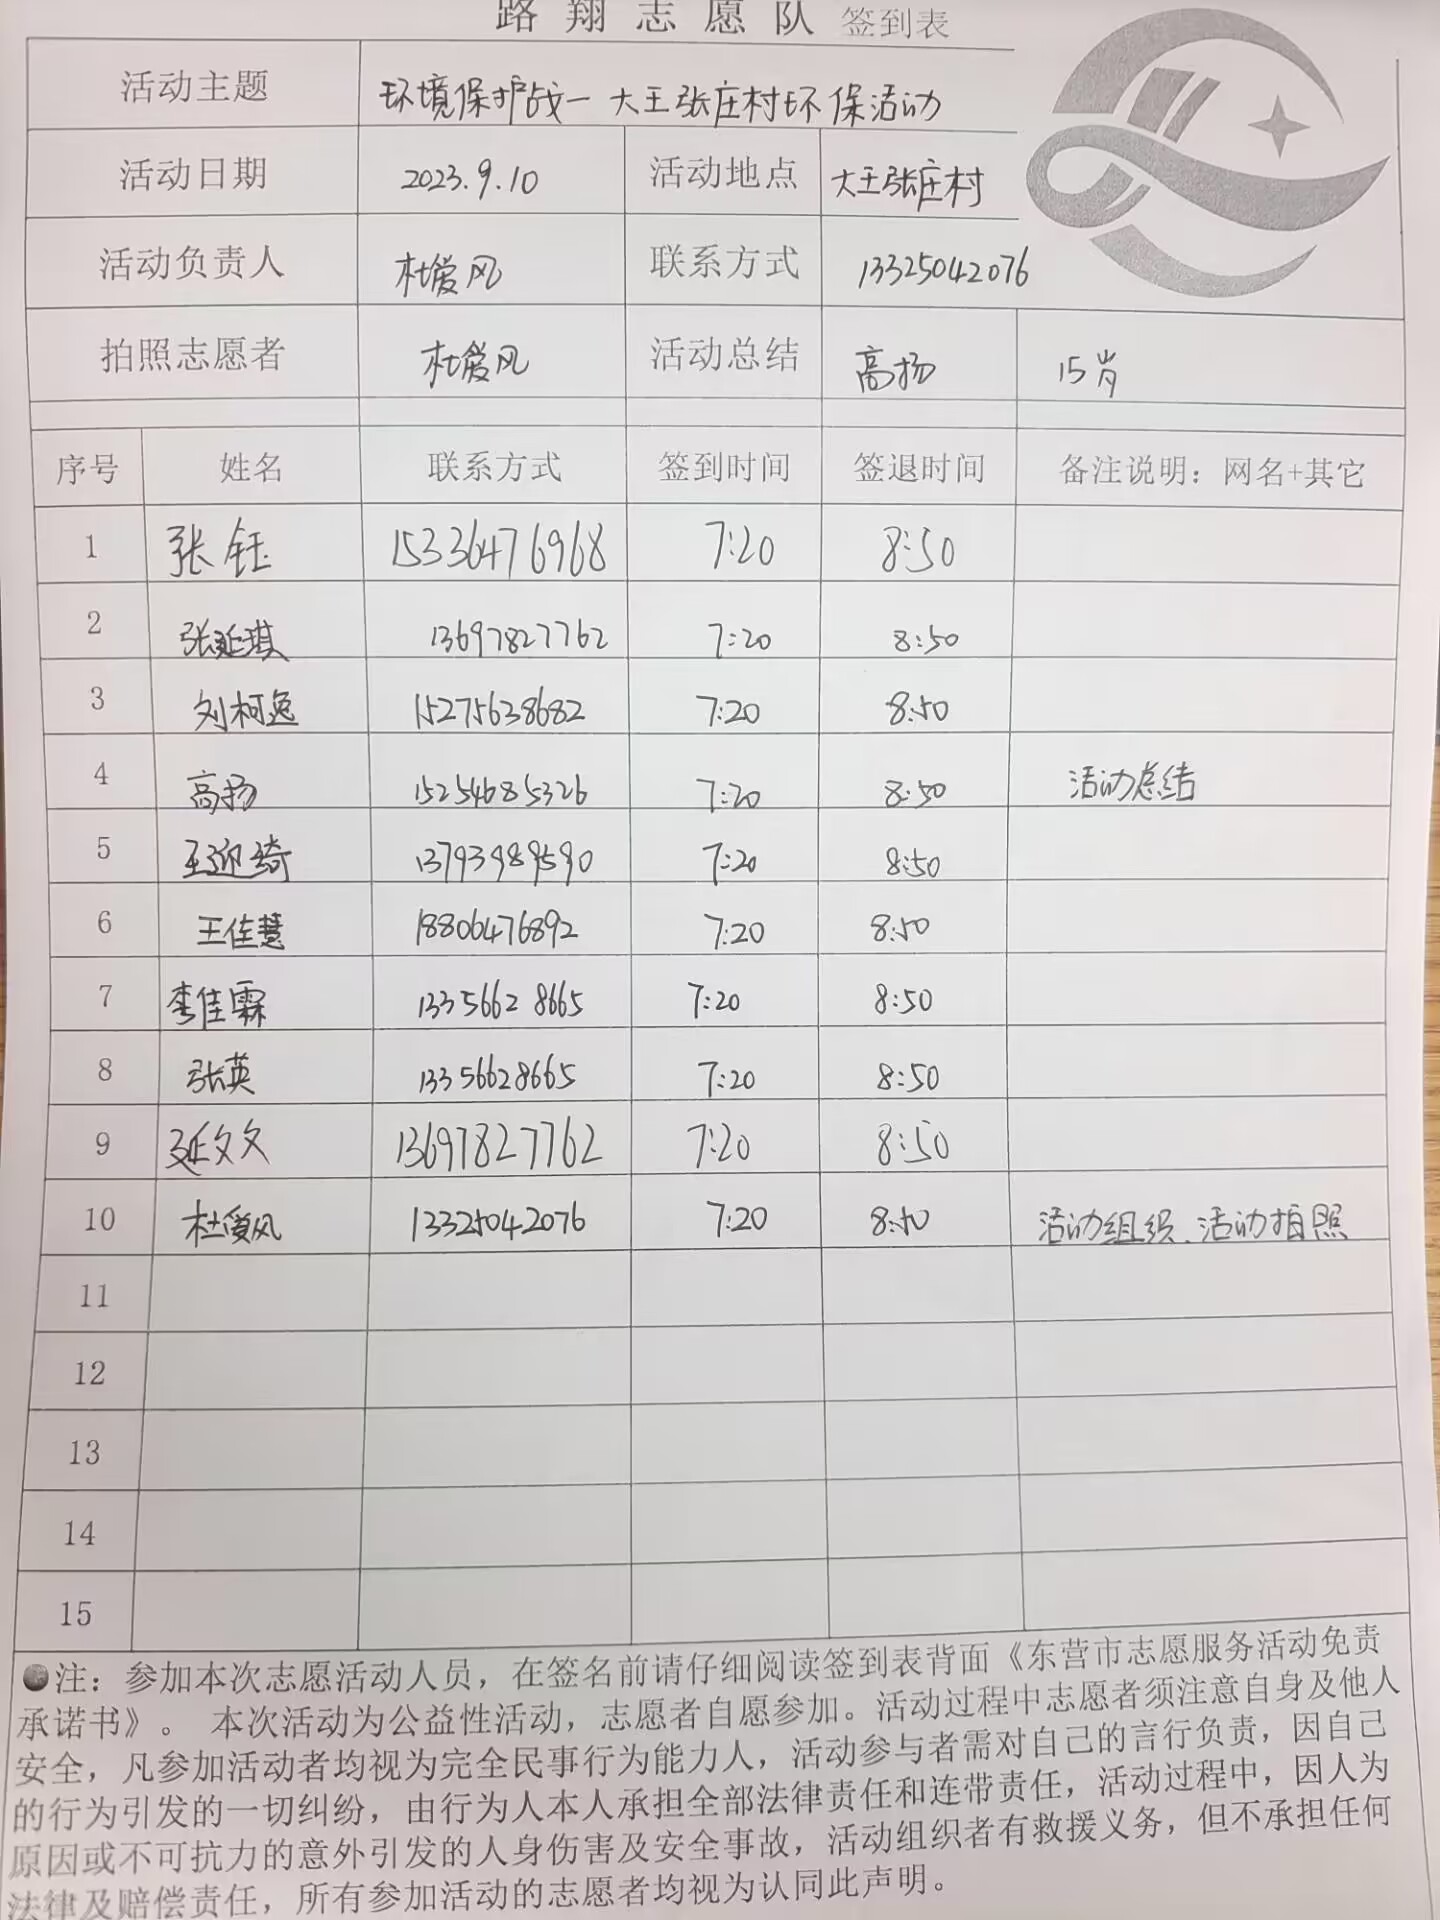 路翔志愿队 签到表
活动主题 环境保护战一大王张庄村环保活动
活动日期 2023.9.10 活动地点 大王张庄村
活动负责人 杜爱风 联系方式 13325042076
拍照志愿者 杜爱风 活动总结 高扬 15岁
序号 姓名 联系方式 签到时间 签退时间 备注说明：网名+其它
1 张钰 15336476968 7:20 8:50
2 张延琪 13697827762 7:20 8:50
3 刘柯逸 15275638682 7:20 8:50
4 高扬 15254685326 7:20 8:50 活动总结
5 王迎琦 13793989590 7:20 8:50
6 王佳慧 18806476892 7:20 8:50
7 李佳霖 13356628665 7:20 8:50
8 张英 13356628665 7:20 8:50
9 延文文 13697827762 7:20 8:50
10 杜爱风 13325042076 7:20 8:50 活动组织、活动拍照
11
12
13
14
15
注：参加本次志愿活动人员，在签名前请仔细阅读签到表背面《东营市志愿服务活动免责
承诺书》。 本次活动为公益性活动，志愿者自愿参加。活动过程中志愿者须注意自身及他人
安全，凡参加活动者均视为完全民事行为能力人，活动参与者需对自己的言行负责，因自己
的行为引发的一切纠纷，由行为人本人承担全部法律责任和连带责任，活动过程中，因人为
原因或不可抗力的意外引发的人身伤害及安全事故，活动组织者有救援义务，但不承担任何
法律及赔偿责任，所有参加活动的志愿者均视为认同此声明。